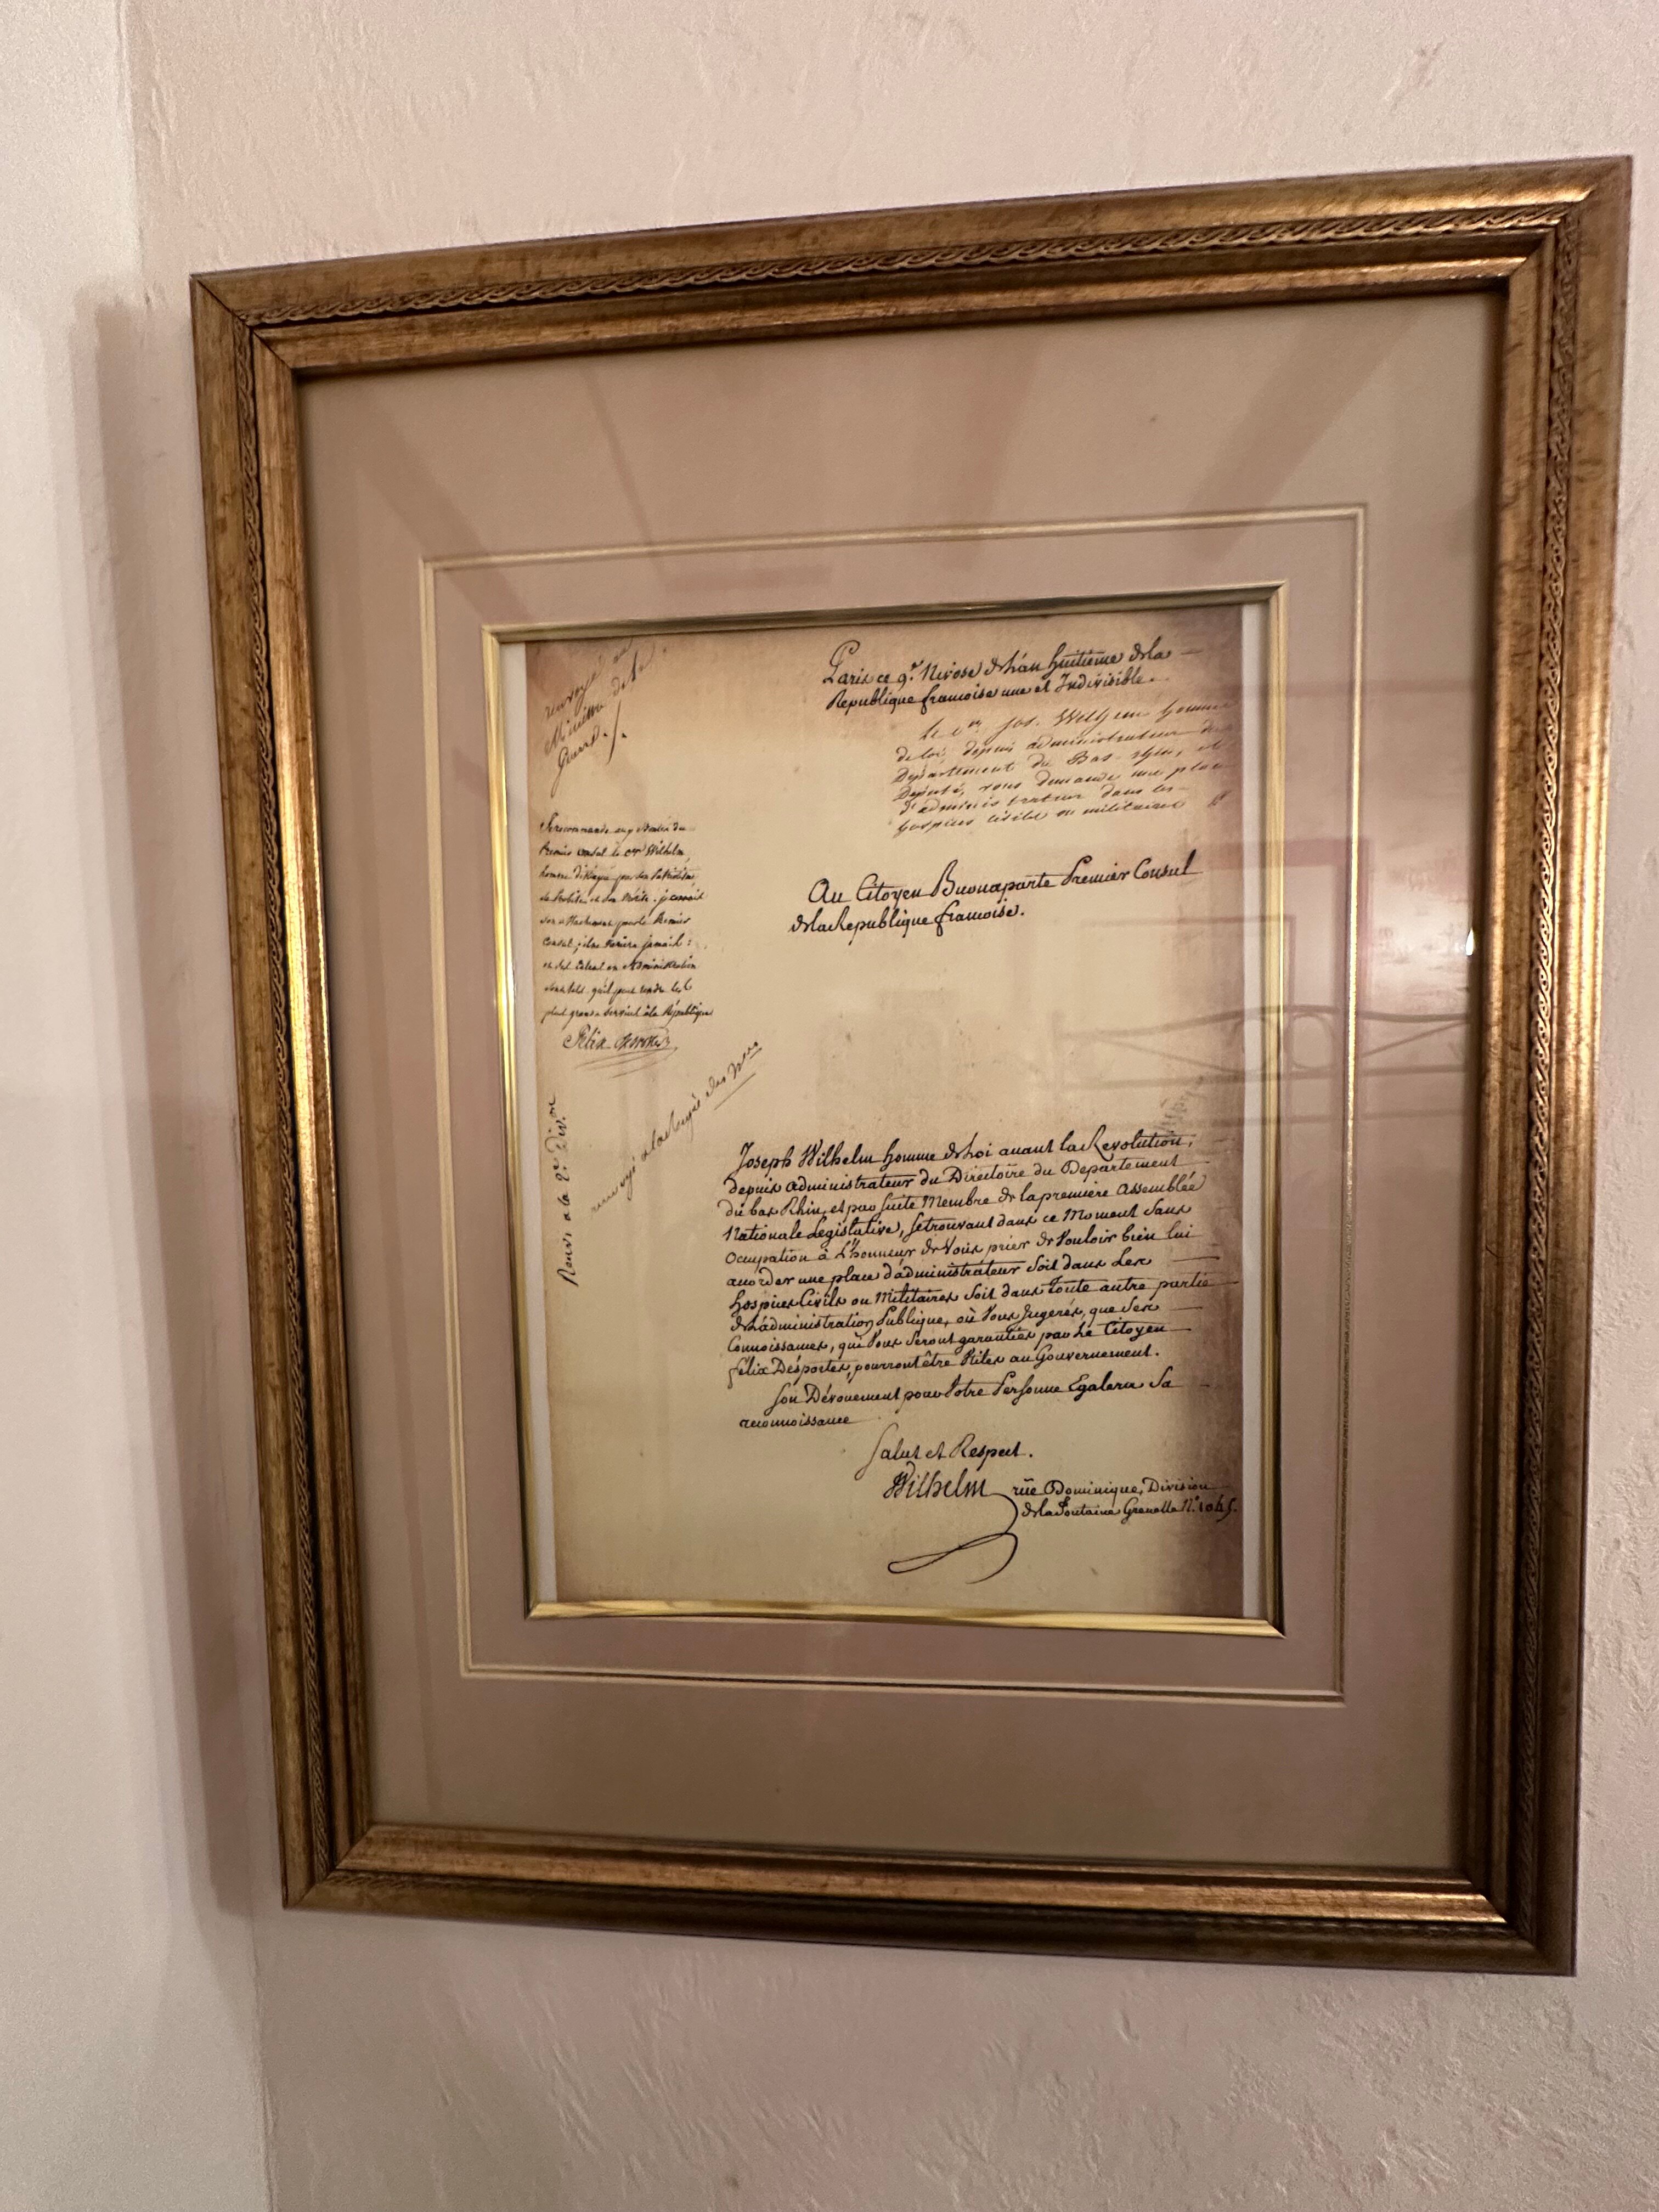 renvoyé au
Ministre de la
Guerre ./.
Paris ce 9.e Nivose de l'an huitieme de la
Republique francoise une et Indivisible.
le Cen Jos. Wilhem homme
de loi, depuis administrateur du
Département du Bas-rhin, et
Député, vous demande une place
d'administrateur dans les
hospices civils ou militaires
Je recommande aux Bontés du
Premier Consul le Cen Wilhelm,
homme distingué par son Patriotisme
sa Probité et son Mérite. je connois
son attachement pour le Premier
Consul, il ne variera jamais :
et ses talens en Administration
sont tels qu'il peut rendre les
plus grands services à la République
Félix Desportes
Au Citoyen Buonaparte Premier Consul
de la Republique francoise.
renvoyé a la
Renv. a la 2e Divon
Joseph Wilhelm homme de Loi avant la Revolution,
depuis administrateur du Directoire du Departement
du bas Rhin, et par suite Membre de la première Assemblée
Nationale Legislative, se trouvant dans ce Moment sans
Occupation à L'honneur de Vous prier de Vouloir bien lui
accorder une place d'administrateur soit dans Les
hospices Civils ou Militaires soit dans toute autre partie
de L'administration Publique, où Vous Jugeréz, que Ses
Connoissances, qui Vous Seront garanties par Le Citoyen
felix Désportes, pourront être Utiles au Gouvernement.
Son Dévouement pour Votre Personne Egalera Sa
reconnoissance
Salut et Respect.
Wilhelm rüe Dominique, Division
de la Fontaine Grenelle N.o